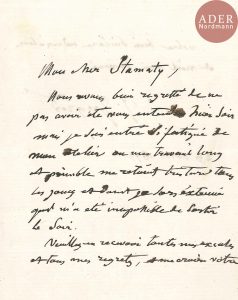 ADER
Nordmann
Mon cher Stamaty,
Nous avons bien regretté de ne
pas avoir été vous entendre hier soir
mais je suis entré si fatigué de
mon atelier ou un travail long
et pénible me retient tous
les jours et dont je sors exténué
qu'il m'a été impossible de sortir
le soir.
Veuillez en recevoir toutes mes excuses
et tous mes regrets, et me croire votre